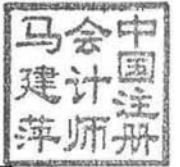 中国注册
会计师
马建萍